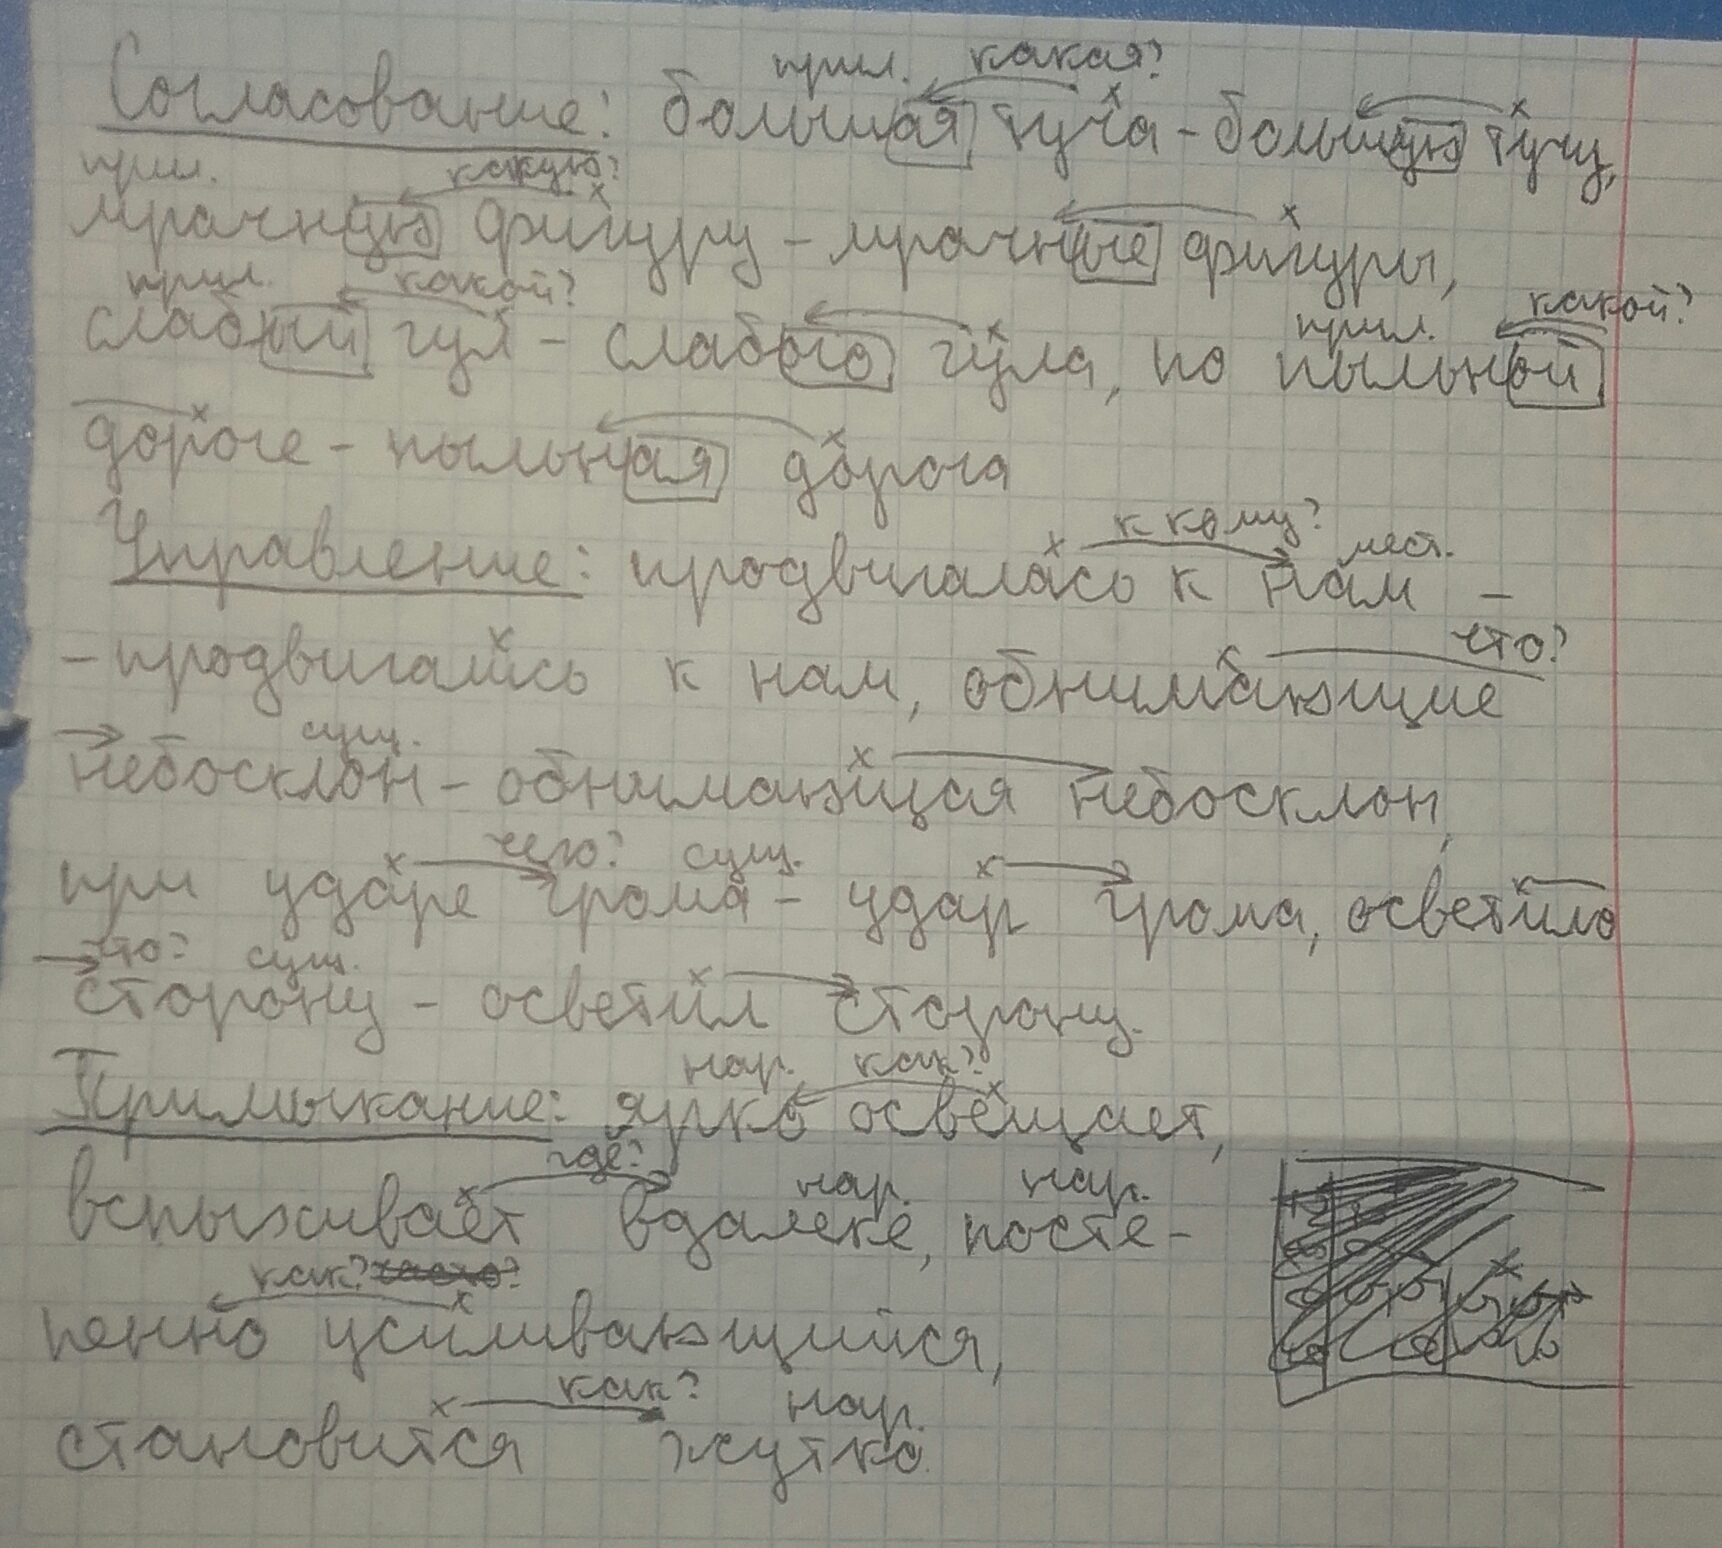 прил. какая?
Согласование: большая туча - большую тучу,
прил. какую?
мрачную фигуру - мрачные фигуры,
прил. какой? какой?
слабый гул - слабого гула, по пыльной прил.
дороге - пыльная дорога
к кому? мест.
Управление: продвигалась к нам -
- продвигаясь к нам, обнимающие что?
сущ.
небосклон - обнимающая небосклон,
чего? сущ.
при ударе грома - удар грома, осветило
что? сущ.
сторону - осветил сторону.
нар. как?
Примыкание: ярко освещает,
где? нар. нар.
вспыхивает вдалеке, посте-
как?
пенно усиливающийся,
как? нар.
становится жутко.